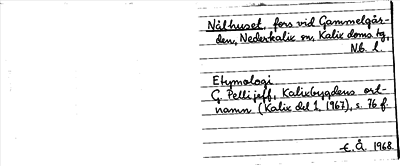 Nålhuset, fors vid Gammelgår-
den, Nederkalix sn, Kalix doms tg,
Nb. l.
Etymologi
G. Pellijeff, Kalixbygdens ort-
namn (Kalix del 1, 1967), s. 76 f.
E. Å. 1968